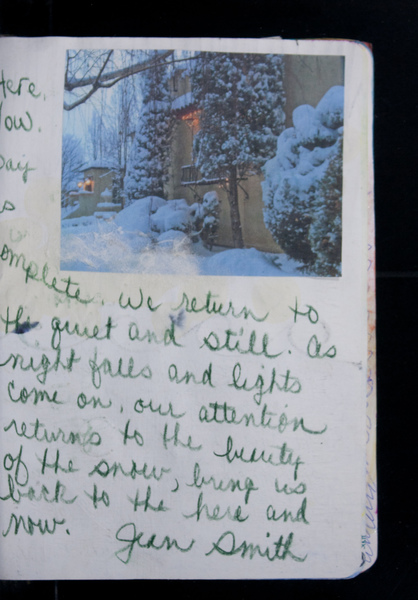 Here.
Now.
Day
is
omplete. We return to
the quiet and still. As
night falls and lights
come on, our attention
returns to the beauty
of the snow, bring us
back to the here and
now.
Jean Smith